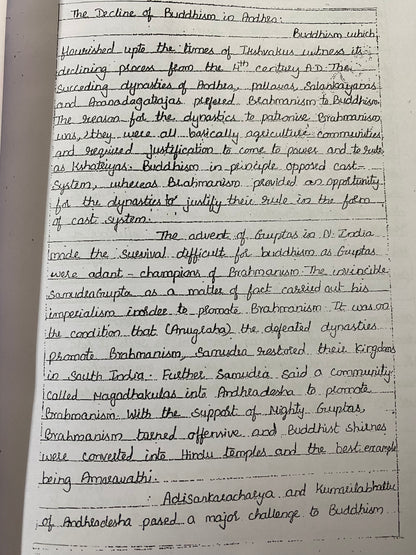 The Decline of Buddhism in Andhra:
Buddhism which
flourished upto the times of Ikshvakus witness its
declining process from the 4th century A.D. The
Succeding dynasties of Andhra, pallavas, Salankayanas
and Anandagotrajas prefered Brahmanism to Buddhism
The reason for the dynastics to patronise Brahmanism
was, they were all basically agriculture communities
and required justification to come to power and to rule
as Kshatriyas. Buddhism in principle opposed cast-
System, whereas Brahmanism provided an opportunity
for the dynasties to justify their rule in the form
of cast system.
The advent of Guptas in N. India
made the survival difficult for buddhism as Guptas
were adant - champions of Brahmanism. The invincible
Samudra Gupta as a matter of fact carried out his
imperialism inorder to promote Brahmanism. It was on
the condition that (Anugraha) the defeated dynasties
promote Brahmanism, Samudra restored their Kingdoms
in South India. Further Samudra said a community
called Magadhakulas into Andhradesha to promote
Brahmanism. With the support of Mighty Guptas,
Brahmanism turned offensive and Buddhist shrines
were converted into Hindu temples and the best example
being Amaravathi.
Adisankaracharya and Kumarilabhatta
of Andhradesha posed a major challenge to Buddhism